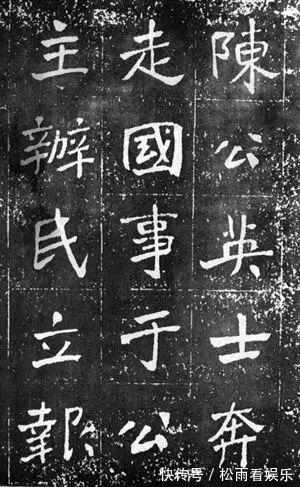 陳公英士奔
走國事于公
主辦民立報
快传号／松雨看娱乐